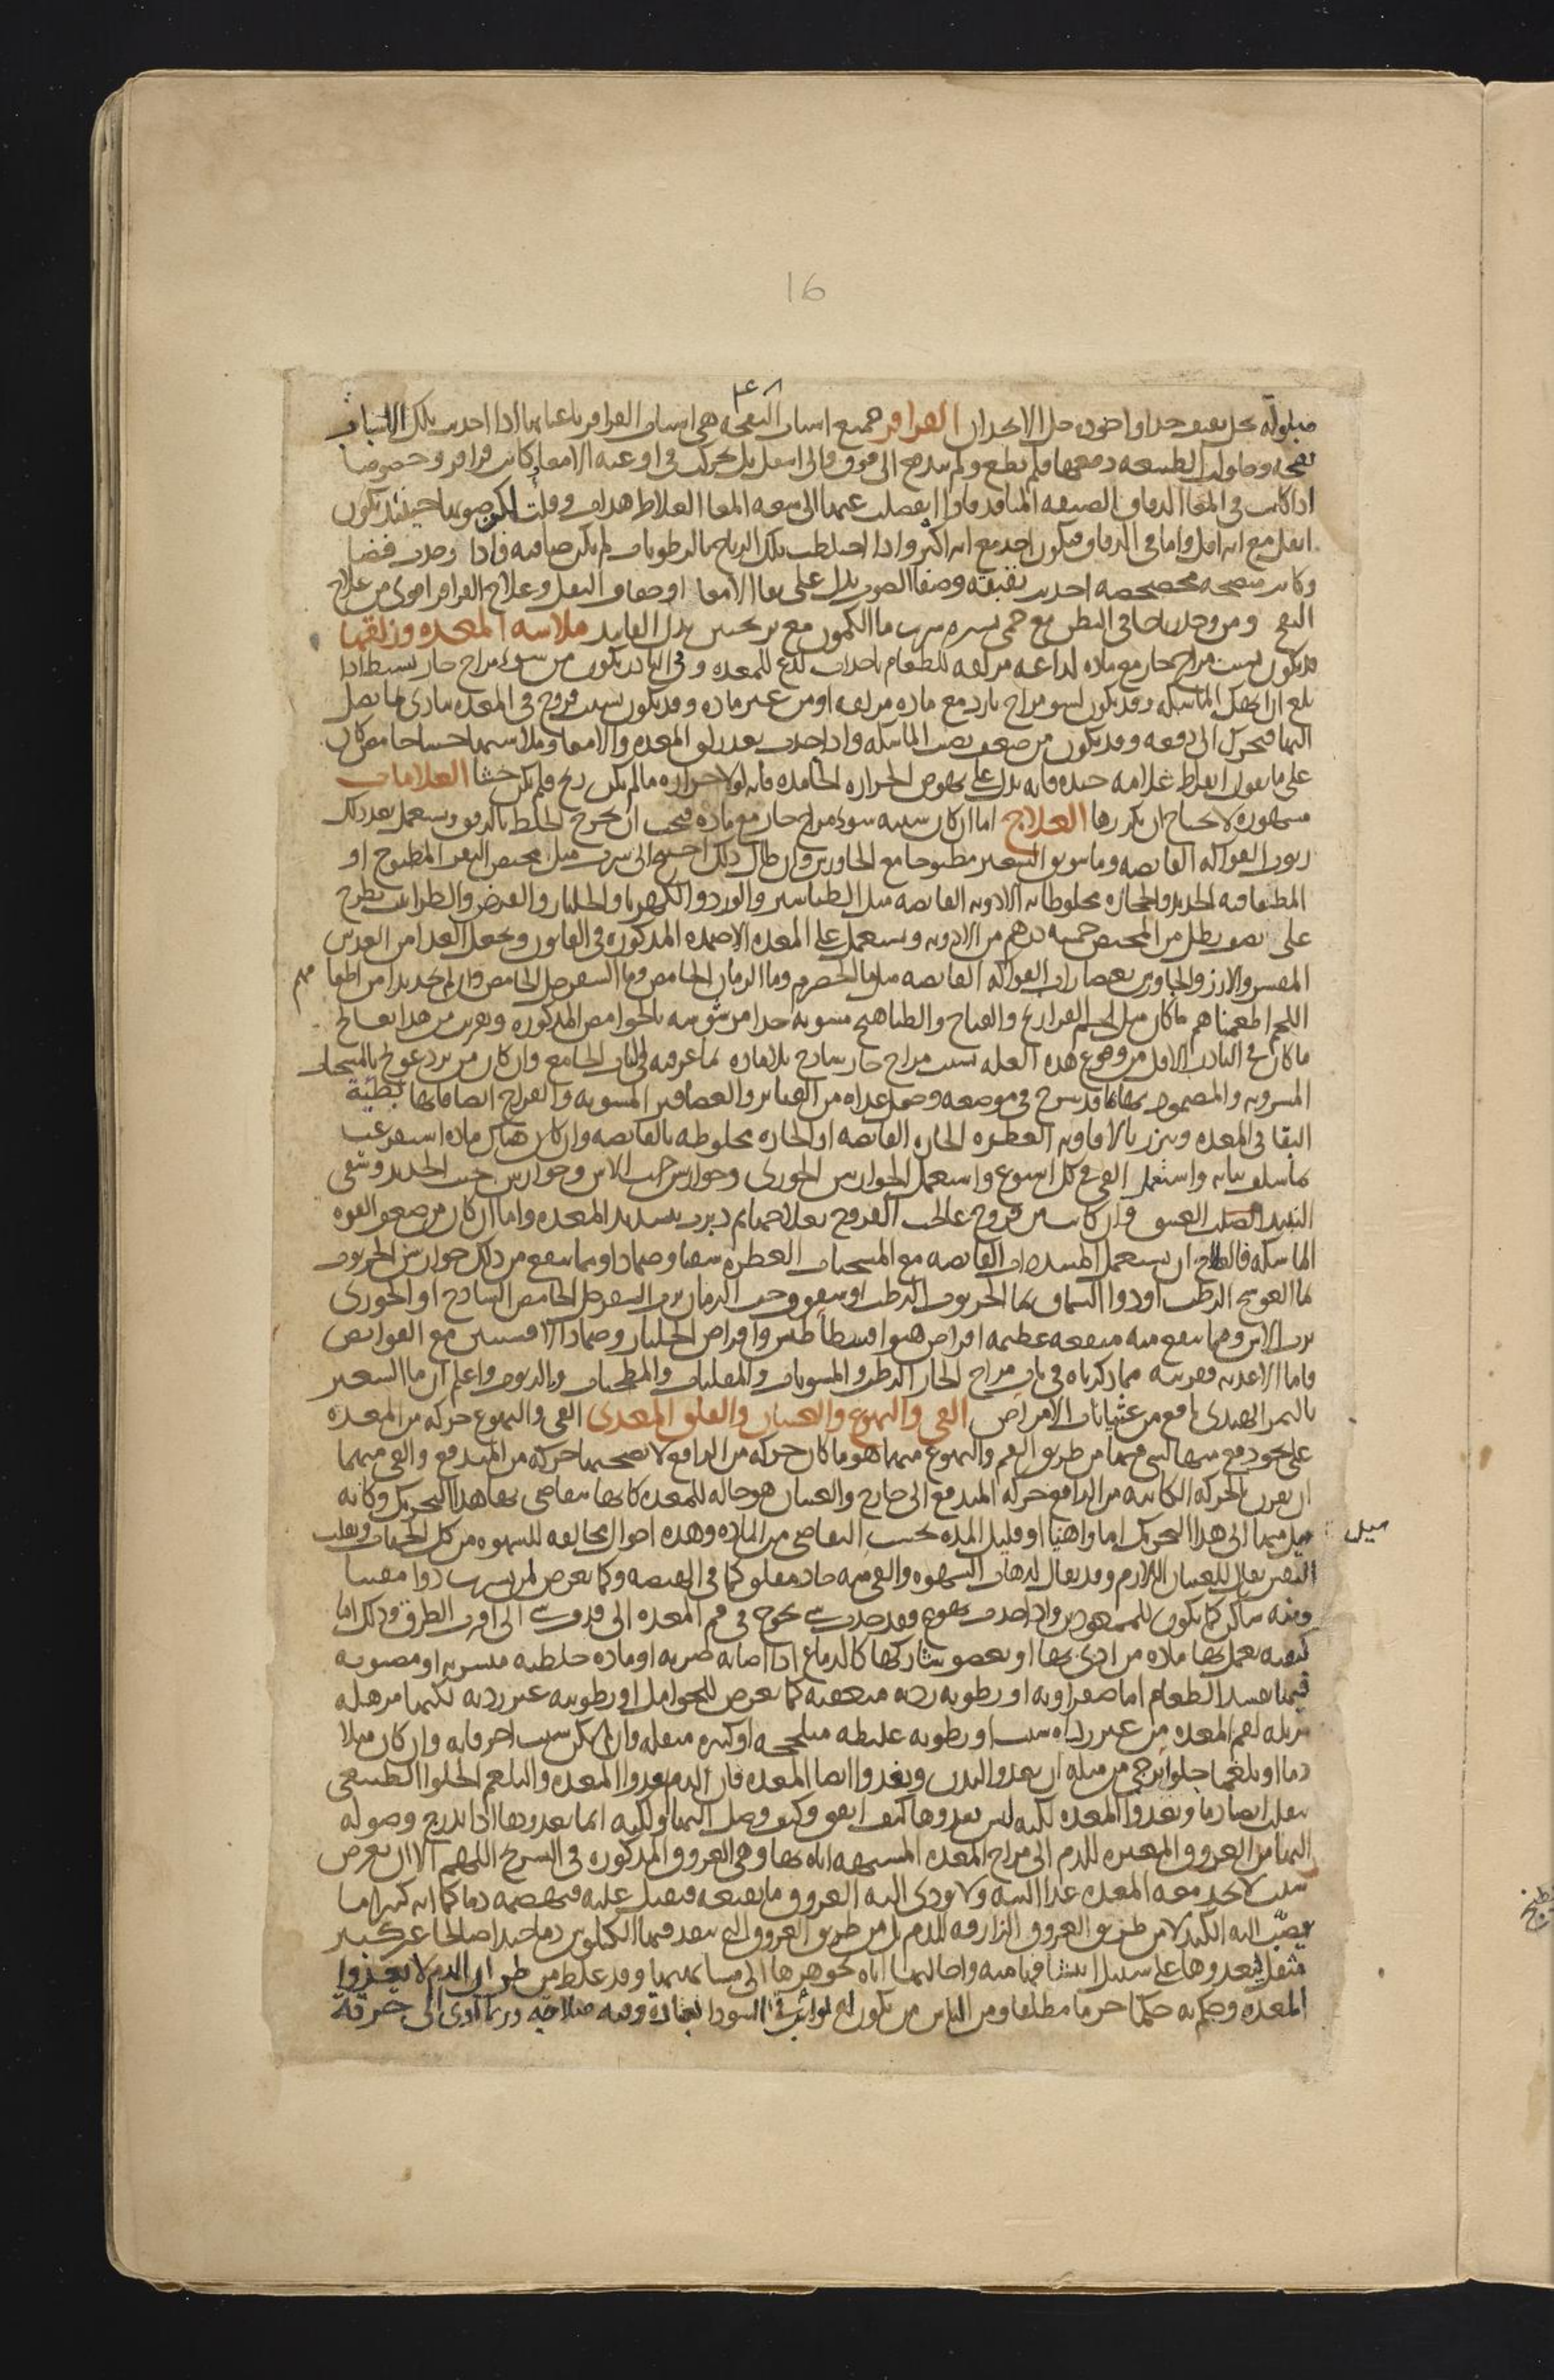 16
مبلولة بخل ثقيف جدا واجوده خل الانجدان القراقر جميع اسباب النفخة هى اسباب القراقر باعيانها اذا احدثت تلك الاسباب
نفخة وحاولت الطبيعة دفعها فلم تطع ولم تندفع الى فوق والى اسفل بل تحركت فى اوعية الامعا كانت قراقر وخصوصا
اذا كانت فى المعا الدقاق الضيقة المنافذ فاذا انفصلت عنها الى سعة المعا الغلاظ هدات وقلت لكن صوتها حينئذ يكون
اثقل مع انه اقل واما فى الدقاق فيكون احد مع انه اكثر واذا اختلطت تلك الرياح بالرطوبات لم تكن صافية فاذا وجدت فضا
وكانت منضجة محصحصة احدثت بقبقة وصفا الصوت يدل على نقا الامعا او جفاف الثفل وعلاج القراقر اقوى من علاج
النفخ ومن وجد رياحا فى البطن مع حمى يسيرة شرب ما الكمون مع ترنجبين بدل الفانيد ملاسة المعدة وزلقها
قد يكون بسبب مزاج حار مع مادة لذاعة مزلقة للطعام باحداث لذع للمعدة وفى النادر يكون من سوء مزاج حار بسيط اذا
بلغ ان انهك الماسكة وقد يكون لسو مزاج بارد مع مادة مزلقة او من غير مادة وقد يكون بسبب قروح فى المعدة تتاذى بما يصل
اليها فتحرك الى دفعه وقد يكون من ضعف يصيب الماسكة واذا حدث بعد زلق المعدة والامعا وملاستهما جشا حامض كان
على ما يقول ابقراط علامة جيدة فانه يدل على نهوض الحرارة الجامدة فانه لولا حرارة ما لم يكن ريح فلم يكن جشا العلامات
مشهورة لا يحتاج ان نكررها العلاج اما ان كان سببه سوء مزاج حار مع مادة فيجب ان يخرج الخلط بالرفق ويستعمل بعد ذلك
ربوب الفواكه القابضة وما سويق الشعير مطبوخا مع الجاورس وان طال ذلك احتيج الى شرب مثل مخيض البقر المطبوخ او
المطفا فيه الحديد والحجارة مخلوطا به الادوية القابضة مثل الطباشير والورد والكهربا والجلنار والقرض والطراثيث يطرح
على نصف رطل من المخيض خمسة دراهم من الادوية ويستعمل على المعدة الاضمدة المذكورة فى القانون ويجعل الغذا من العدس
المقشر والارز والجاورس بعصارات الفواكه القابضة مثل ما الحصرم وما الرمان الحامض وما السفرجل الحامض وان لم نجد بدا من اطعامهم
اللحم اطعمناهم ما كان مثل لحم الفراريج والقباج والطياهيج مشوية جدا مرشوشة بالحوامض المذكورة وبقريب من هذا يعالج
ما كان فى النادر الاقل من وقوع هذه العلة بسبب مزاج حار ساذج بلا مادة كما عرفته فى الباب الجامع وان كان من برد عولج بالمسخنات
المشروبة والمضمود بها مما قد شرح فى موضعه وجعل غذاه من القنابر والعصافير المشوية والفراخ ايضا فانها بطيئة
البقا فى المعدة وتبزر بالافاويه العطرة الحارة القابضة او الحارة مخلوطة بالقابضة وان كان هناك مادة استفرغت
بما سلف بيانه واستعمل القى فى كل اسبوع واستعمل الجوارشن الجوزى وجوارشن حب الاس وجوارشن خبث الحديد وسقى
النبيذ الصلب العتيق وان كانت من قروح عالجت القروح بعلاجها ثم دبرت بتشديد المعدة واما ان كان من ضعف القوة
الماسكة فالعلاج ان يستعمل المشددات القابضة مع المسخنات العطرة سقيا وضمادا ومما ينفع من ذلك جوارشن الخرنوب
بما الفودنج الرطب او دوا السماق بما الخرنوب الرطب او سفوف حب الرمان برب السفرجل الحامض الساذج او الخوزى
برب الاس ومما ينفع منه منفعة عظيمة اقراص هيوافسطيداس واقراص الجلنار وضماد الافسنتين مع القوابض
واما الاغذية فقد بينته مما ذكرناه فى باب مزاج الحار الرطب والمشويات والمقليات والمطجنات وبالربوب واعلم ان ما الشعير
بالتمر الهندى نافع من غثيانات الامراض القى والتهوع والغثيان والقلق المعدى القى والتهوع حركة من المعدة
على نحو دفع منها لشى فيها من طريق الفم والتهوع منهما هو ما كان حركة من الدافع لا يصحبها حركة من المندفع والقى منهما
ان يقترن بالحركة الكائنة من الدافع حركة المندفع الى خارج والغثيان هو حالة للمعدة كانها تتقاضى بها هذا التحريك وكانه
ميل منها الى هذا التحريك اما راهنا او قليل المدة بحسب التقاضى من المادة وهذه احوال مخالفة للشهوة من كل الجهات وتقلب
النفس يقال للغثيان اللازم وقد يقال لذهاب الشهوة والقى منه حاد مقلق كما فى الهيضة وكما يعرض لمن يشرب دوا مقيئا
ومنه ساكن كما يكون للممعودين واذا حدث تهوع فقد حدث شى يحوج فم المعدة الى قذف شى الى اقرب الطرق وذلك اما
كيفية تعمل بها مادة من اذى بها او بعضو يشاركها كالدماغ اذا اصابه ضربة او مادة خلطية متشربة او مصبوبة
فيها يفسد الطعام اما صفراوية او رطوبة ردية متعفنة كما يعرض للحوامل او رطوبة غير ردية لكنها مرهلة
مزيلة لفم المعدة من غير رداة سبب او رطوبة غليظة متلحجة او كثيرة مثقلة وان لم يكن سبب اخر فانه وان كان مثلا
دما او بلغما حلوا يرجى من مثله ان يغذو البدن ويغذو ايضا المعدة فان الدم يغذو المعدة والبلغم الحلو الطبيعى
ينقلب ايضا دما ويغذو المعدة لكنه ليس يغذوها كيف اتفق وكيف وصل اليها ولكنه انما يغذوها اذا تدرج وصوله
اليها من العروق المغيرة للدم الى مزاج المعدة المشبهة اياه بها وهى العروق المذكورة فى التشريح اللهم الا ان يعرض
سبب لا تجد معه المعدة غذا البتة ولا يودى اليه العروق ما يقنعه فيقبل عليه فيهضمه دما كما انه كثيرا ما
يصب اليه الكبد لا من طريق العروق الزارقة للدم بل من طريق العروق التى ينفذ فيها الكيلوس دما جيدا صالحا غير كثير
مثقل ليغذوها على سبيل انتشافها منه واحالتها اياه بجوهرها الى مشابهتها وقد غلط من ظن ان الدم لا يغذوا
المعدة وحكم به حكما جزما مطلقا ومن الناس من يكون له نوايب فى السودا بعادة وفيه صلاحه وربما ادى الى حرقة
ميل